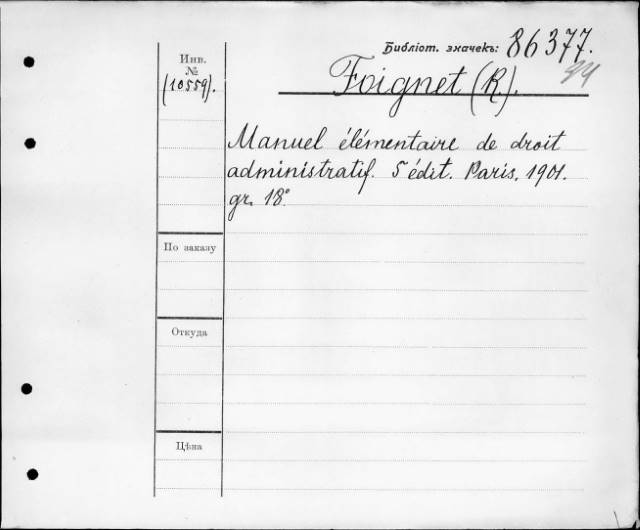 Библіот. значекъ: 86377.
Инв.
№
(10559).
Foignet (R.).
Manuel élémentaire de droit
administratif. 5 édit. Paris. 1901.
gr. 18°
По заказу
Откуда
Цѣна